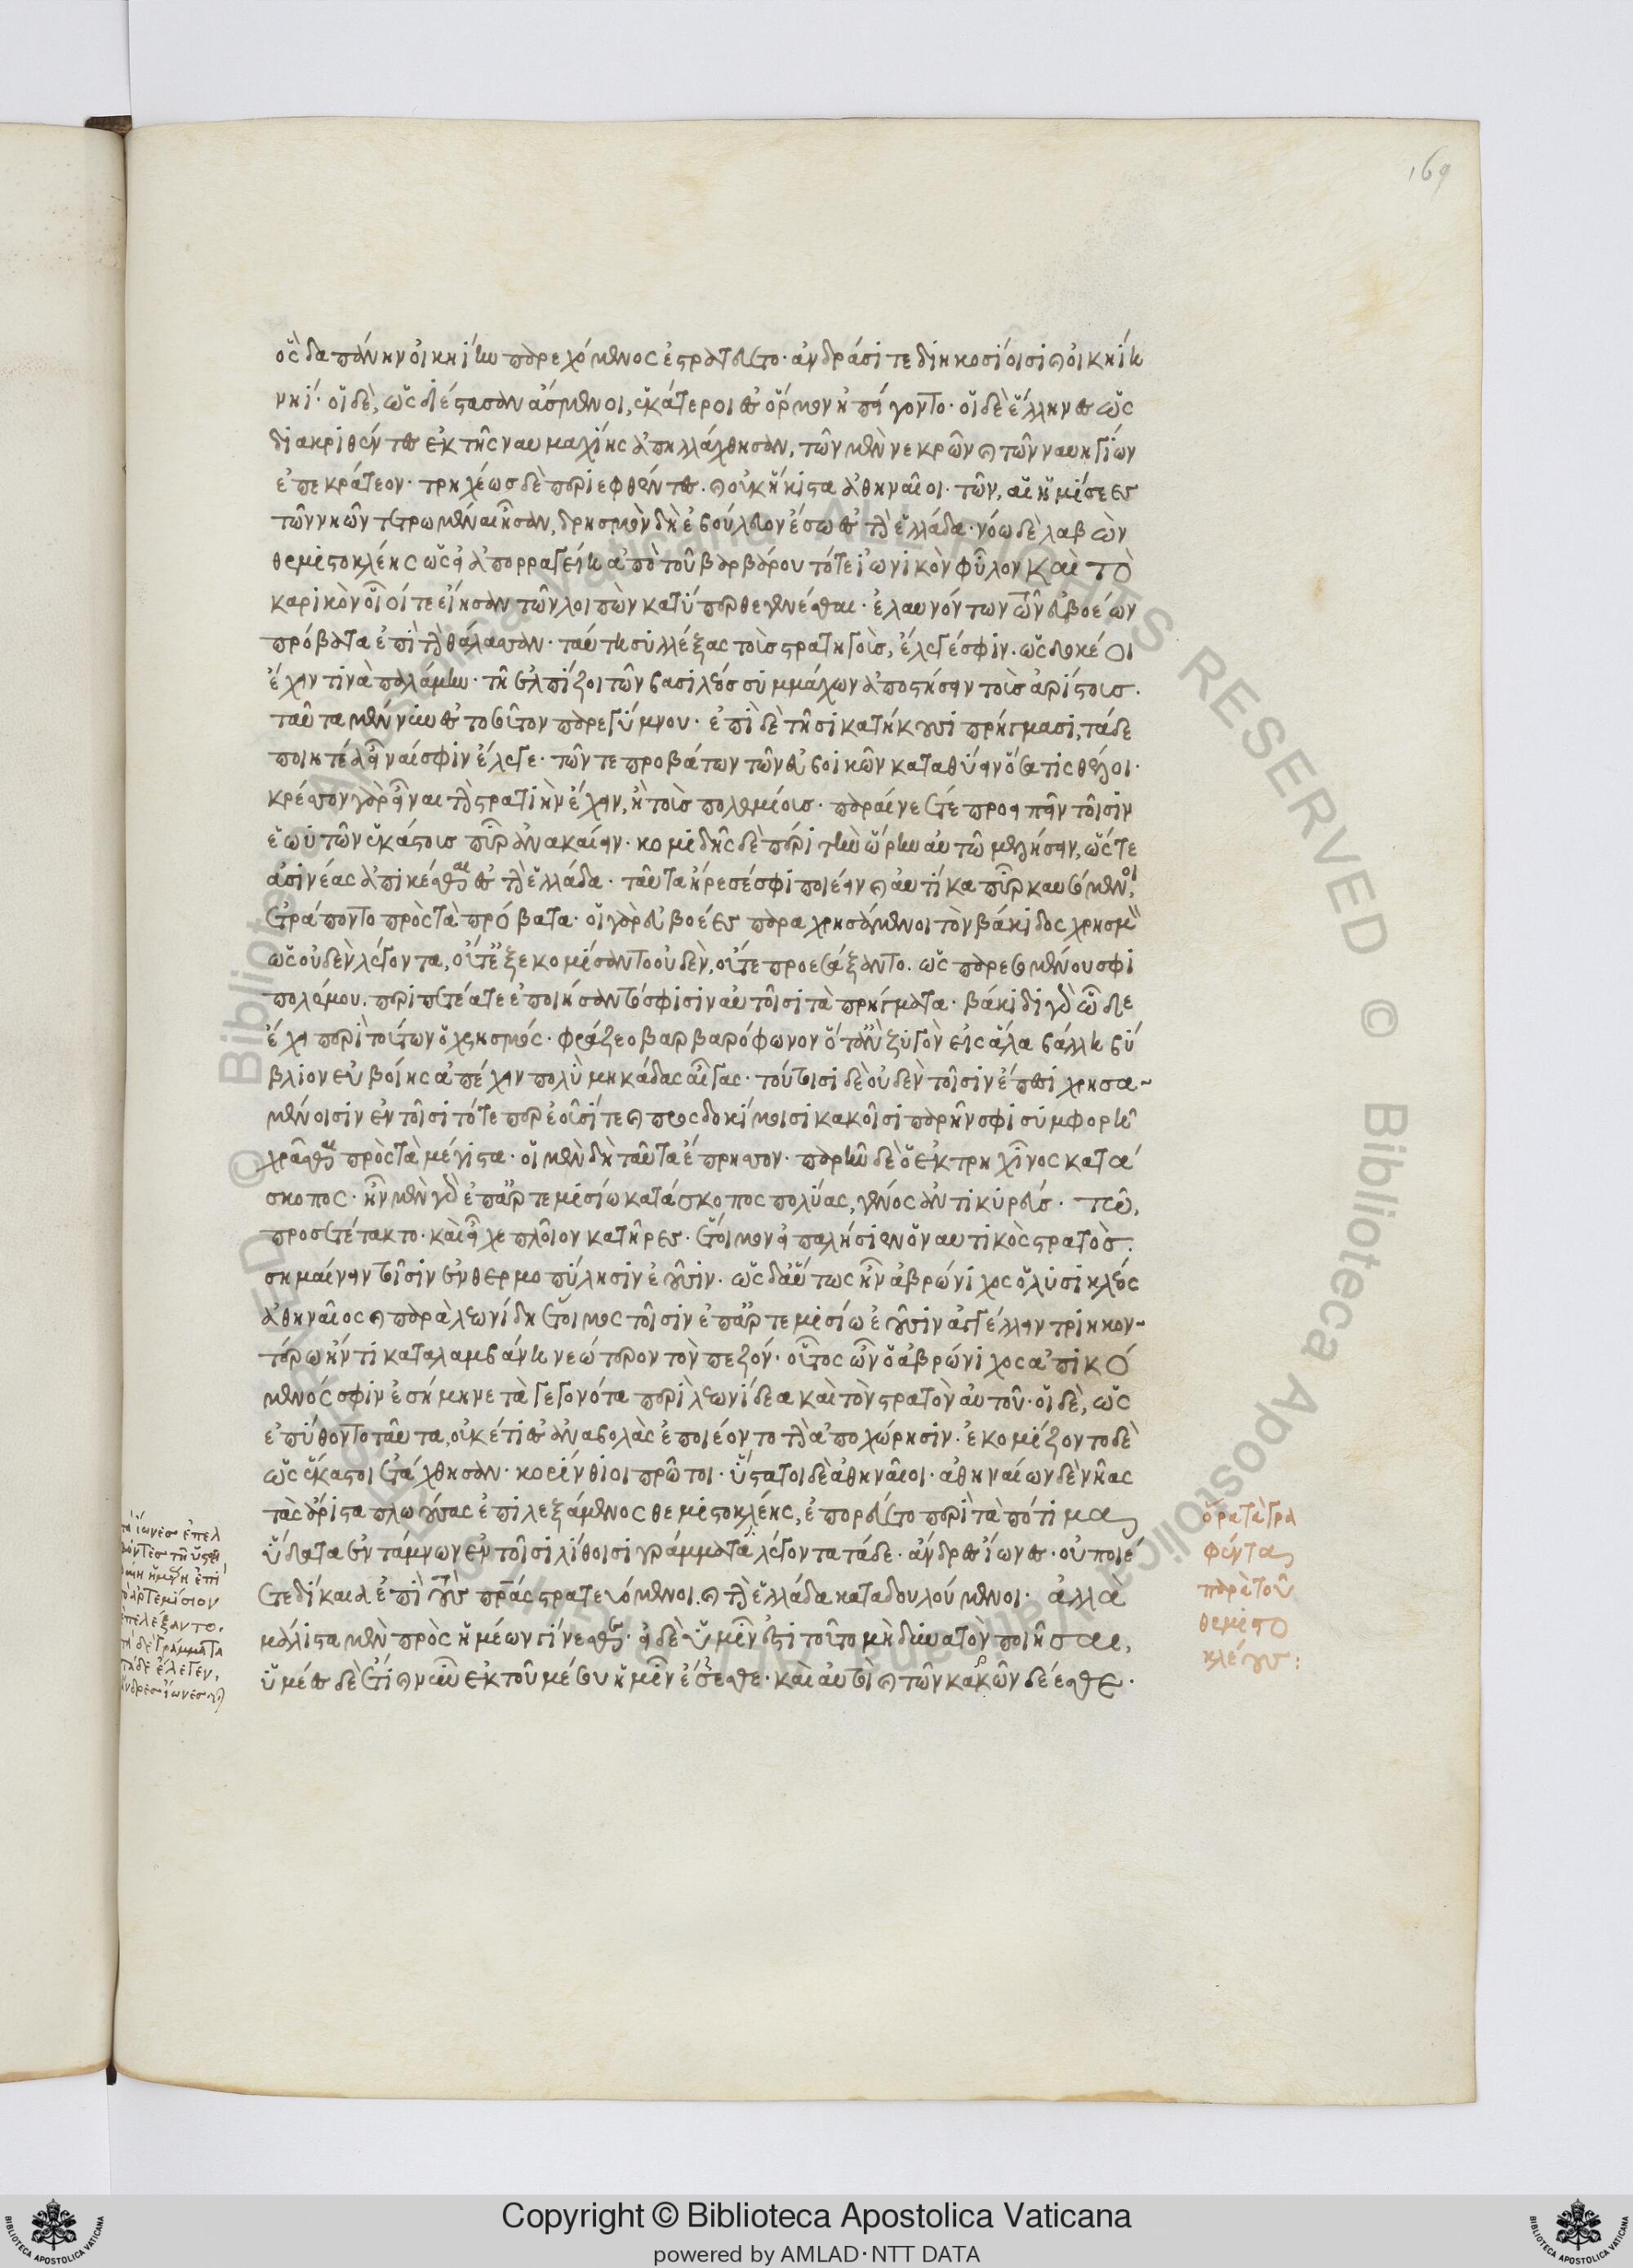 169
ὃς δαπάνην οἰκηίην παρεχόμενος ἐστρατεύετο· ἀνδράσι τε διηκοσίοισι καὶ οἰκηίη
νηί· οἱ δὲ, ὡς διέστασαν ἄσμενοι, ἑκάτεροι ἐς ὅρμον ἠπείγοντο· οἱ δὲ ἕλληνες ὡς
διακριθέντες ἐκ τῆς ναυμαχίης ἀπηλλάχθησαν, τῶν μὲν νεκρῶν καὶ τῶν ναυηγίων
ἐπεκράτεον· τρηχέως δὲ περιεφθέντες· καὶ οὐκ ἥκιστα ἀθηναῖοι· τῶν, αἱ ἡμίσεες
τῶν νηῶν τετρωμέναι ἦσαν, δρησμὸν δὴ ἐβούλευον ἔσω ἐς τὴν ἑλλάδα· νόω δὲ λαβὼν
θεμιστοκλέης ὡς εἰ ἀπορραγείη ἀπὸ τοῦ βαρβάρου τό τε ἰωνικὸν φῦλον καὶ τὸ
καρικὸν οἷοί τε εἴησαν τῶν λοιπῶν κατύπερθε γενέσθαι· ἐλαυνόντων τῶν εὐβοέων
πρόβατα ἐπὶ τὴν θάλασσαν· ταύτη συλλέξας τοὺς στρατηγοὺς, ἔλεγέ σφιν· ὡς δοκέοι
ἔχειν τινὰ παλάμην· τῆ ἐλπίζοι τῶν βασιλέος συμμάχων ἀποστήσειν τοὺς ἀρίστους·
ταῦτα μέν νυν ἐς τοσοῦτον παρεγύμνου· ἐπὶ δὲ τῆσι κατήκουσι πρήγμασι, τάδε
ποιητέα εἶναί σφιν ἔλεγε· τῶν τε προβάτων τῶν εὐβοικῶν καταθύειν ὅσα τις θέλοι·
κρέσσον γὰρ εἶναι τὴν στρατιὴν ἔχειν, ἢ τοὺς πολεμίους· παραίνεέ τε προειπεῖν τοῖσιν
ἑωυτῶν ἑκάστους πῦρ ἀνακαίειν· κομιδῆς δὲ πέρι τὴν ὥρην αὐτῶ μελήσειν, ὥστε
ἀσινέας ἀπικέσθαι ἐς τὴν ἑλλάδα· ταῦτα ἤρεσέ σφι ποιέειν καὶ αὐτίκα πῦρ καυσάμενοι
ἐτράποντο πρὸς τὰ πρόβατα· οἱ γὰρ εὐβοέες παραχρησάμενοι τὸν βάκιδος χρησμὸν
ὡς οὐδὲν λέγοντα, οὔτέ ἐξεκομίσαντο οὐδὲν, οὔτε προεσάξαντο· ὡς παρεσομένου σφι
πολέμου· περιπετέα τε ἐποιήσαντο σφίσιν αὐτοῖσι τὰ πρήγματα· βάκιδι γὰρ ὧδε
ἔχει περὶ τούτων ὁ χρησμός· φράζεο βαρβαρόφωνον ὅταν ζυγὸν εἰς ἅλα βάλλη βύ
βλιον εὐβοίης ἀπέχειν πολὺ μηκάδας αἶγας· τούτοισι δὲ οὐδὲν τοῖσιν ἔπεσι χρησα-
μένοισιν ἐν τοῖσι τότε παρέουσί τε καὶ προσδοκίμοισι κακοῖσι παρῆν σφι συμφορῆ
χρᾶσθαι πρὸς τὰ μέγιστα· οἱ μὲν δὴ ταῦτα ἔπρησσον· παρῆν δὲ ὁ ἐκ τρηχῖνος κατά
σκοπος· ἦν μὲν γὰρ ἐπ᾽ ἀρτεμισίω κατάσκοπος πολύας, γένος ἀντικυρεύς· τῶ,
προσετέτακτο· καὶ εἶχε πλοῖον κατῆρες· ἕτοιμον εἰ παλήσιεν ὁ ναυτικὸς στρατὸς·
σημαίνειν τοῖσιν ἐν θερμοπύλησιν ἐοῦσιν· ὡς δ᾽ αὕτως ἦν ἀβρώνιχος ὁ λυσικλέος
ἀθηναῖος καὶ παρὰ λεωνίδη ἕτοιμος τοῖσιν ἐπ᾽ ἀρτεμισίω ἐοῦσιν ἀγγέλλειν τριηκον-
τόρω ἤν τι καταλαμβάνη νεώτερον τὸν πεζόν· οὗτος ὦν ὁ ἀβρώνιχος ἀπικό
μενός σφιν ἐσήμηνε τὰ γεγονότα περὶ λεωνίδεα καὶ τὸν στρατὸν αὐτοῦ· οἱ δὲ, ὡς
ἐπύθοντο ταῦτα, οὐκέτι ἐς ἀναβολὰς ἐποιέοντο τὴν ἀποχώρησιν· ἐκομίζοντο δὲ
ὡς ἕκαστοι ἐτάχθησαν· κορίνθιοι πρῶτοι· ὕστατοι δὲ ἀθηναῖοι· ἀθηναίων δὲ νῆας
τὰς ἄριστα πλωούσας ἐπιλεξάμενος θεμιστοκλέης, ἐπορεύετο περὶ τὰ πότιμα
ὕδατα ἐντάμνων ἐν τοῖσι λίθοισι γράμματα λέγοντα τάδε· ἄνδρες ἴωνες· οὐ ποιέ
ετε δίκαια ἐπὶ τοὺς πατέρας στρατευόμενοι· καὶ τὴν ἑλλάδα καταδουλούμενοι· ἀλλὰ
μάλιστα μὲν πρὸς ἡμέων γίνεσθε· εἰ δὲ ὑμῖν ἐστι τοῦτο μὴ δυνατὸν ποιῆσαι,
ὑμέες δὲ ἔτι καὶ νῦν ἐκ τοῦ μέσου ἡμῖν ἕζεσθε· καὶ αὐτοὶ καὶ τῶν καρῶν δέεσθε·
ὅρα τὰ γρα
φέντα
παρὰ τοῦ
θεμιστο
κλέους:
ἴωνες ἐπελ
θόντες τῆ ὑστε
ἡμέρη ἐπὶ
ἀρτεμίσιον
ἐπελέξαντο·
τὰ δὲ γράμματα
τάδε ἔλεγεν·
ἄνδρες ἴωνες οὐ
Copyright © Biblioteca Apostolica Vaticana
powered by AMLAD·NTT DATA